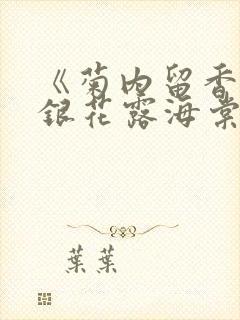 《菊内留香
銀花露海棠
葉葉